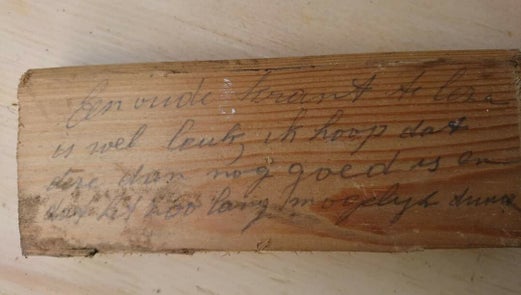 Een oude krant te leze
is wel leuk, ik hoop dat
deze dan nog goed is en
dat het zoo lang mogelyk duurt